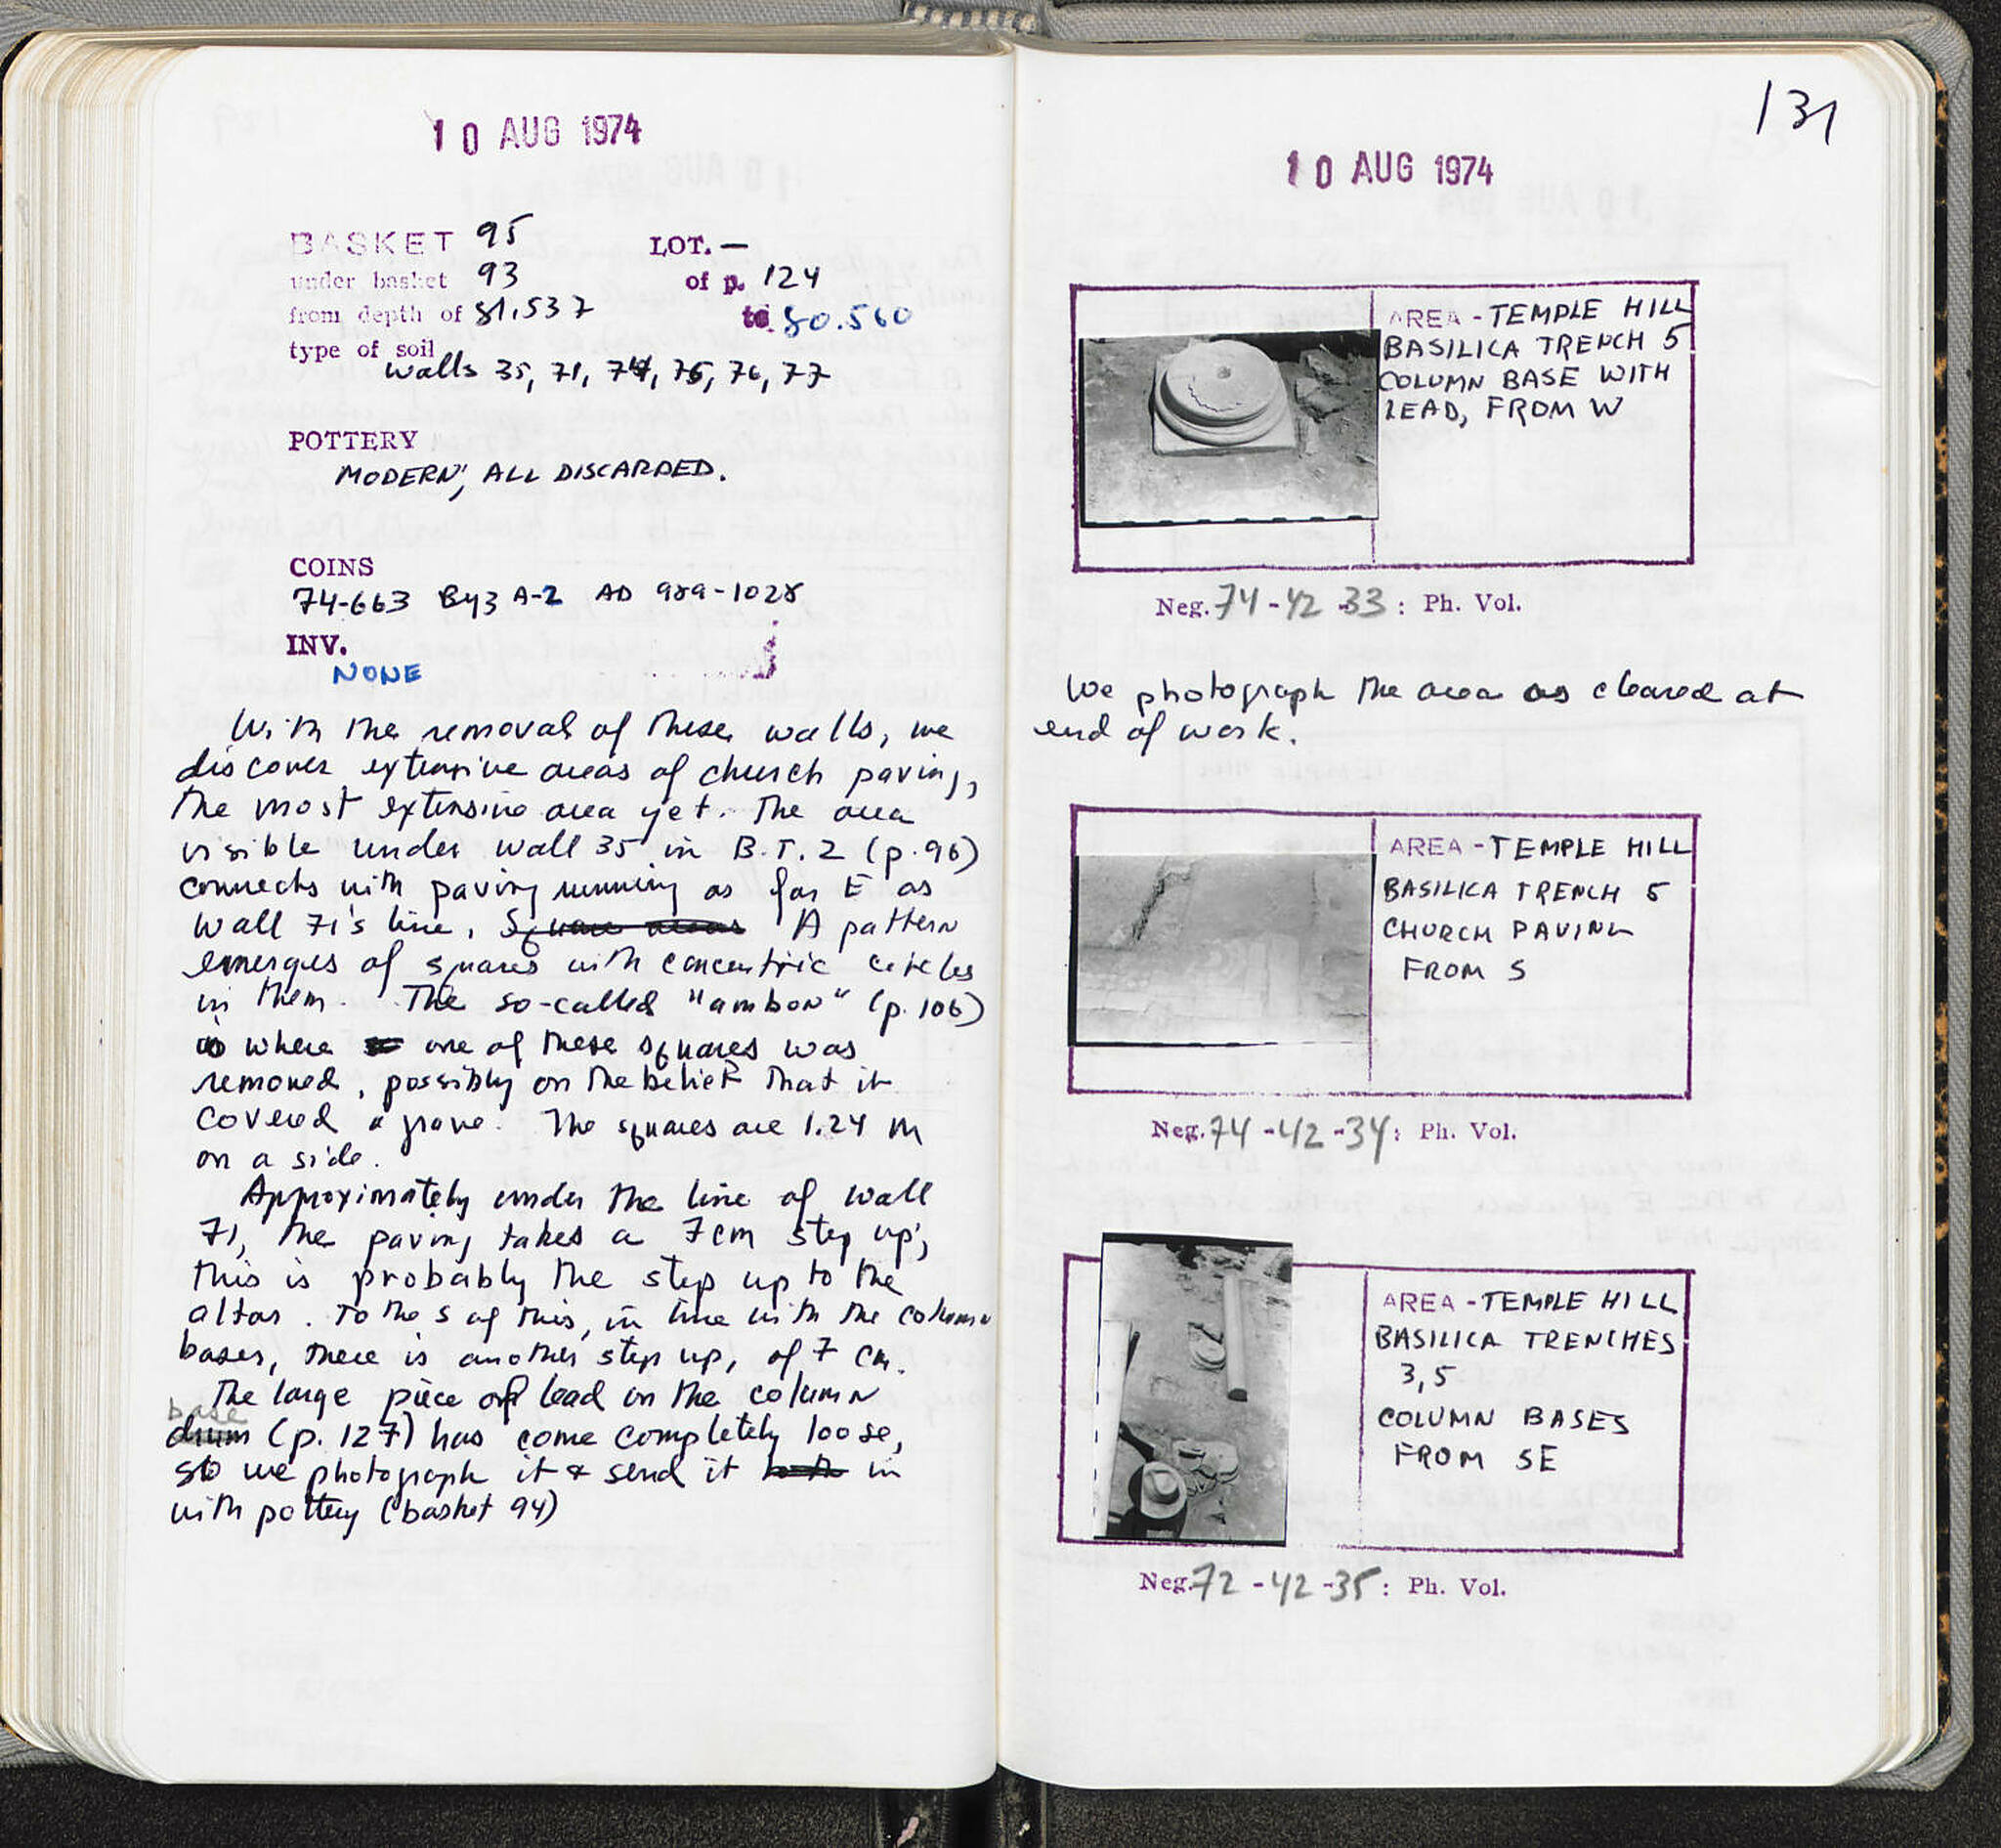 10 AUG 1974
BASKET 95 LOT. —
under basket 93 of p. 124
from depth of 81.537 to 80.560
type of soil
walls 35, 71, 74, 75, 76, 77
POTTERY
MODERN, ALL DISCARDED.
COINS
74-663 Byz A-2 AD 989-1028
INV.
NONE
With the removal of these walls, we
discover extensive areas of church paving,
the most extensive area yet. The area
visible under wall 35 in B.T. 2 (p. 96)
connects with paving running as far E as
wall 71's line. Square areas A pattern
emerges of squares with concentric circles
in them. The so-called "ambon" (p. 106)
is where one of these squares was
removed, possibly on the belief that it
covered a grave. The squares are 1.24 m
on a side.
Approximately under the line of wall
71, the paving takes a 7cm step up;
this is probably the step up to the
altar. To the S of this, in line with the column
bases, there is another step up, of 7 cm.
The large piece of lead in the column
base
drum (p. 127) has come completely loose,
so we photograph it & send it in
with pottery (basket 94)
131
10 AUG 1974
AREA - TEMPLE HILL
BASILICA TRENCH 5
COLUMN BASE WITH
LEAD, FROM W
Neg. 74-42-33 : Ph. Vol.
We photograph the area as cleared at
end of work.
AREA - TEMPLE HILL
BASILICA TRENCH 5
CHURCH PAVING
FROM S
Neg. 74-42-34 : Ph. Vol.
AREA - TEMPLE HILL
BASILICA TRENCHES
3,5
COLUMN BASES
FROM SE
Neg. 72-42-35 : Ph. Vol.